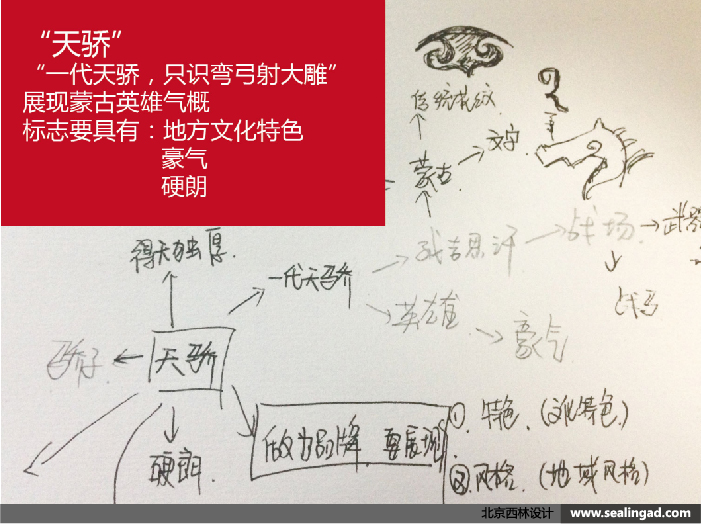 “天骄”
“一代天骄，只识弯弓射大雕”
展现蒙古英雄气概
标志要具有：地方文化特色
豪气
硬朗
传统花纹
文字
蒙古
得天独厚
一代天骄
成吉思汗
战场
武器
战马
英雄
豪气
骄子
天骄
硬朗
做为品牌 要展现
① 特色 (文化特色)
② 风格 (地域风格)
北京西林设计 www.sealingad.com